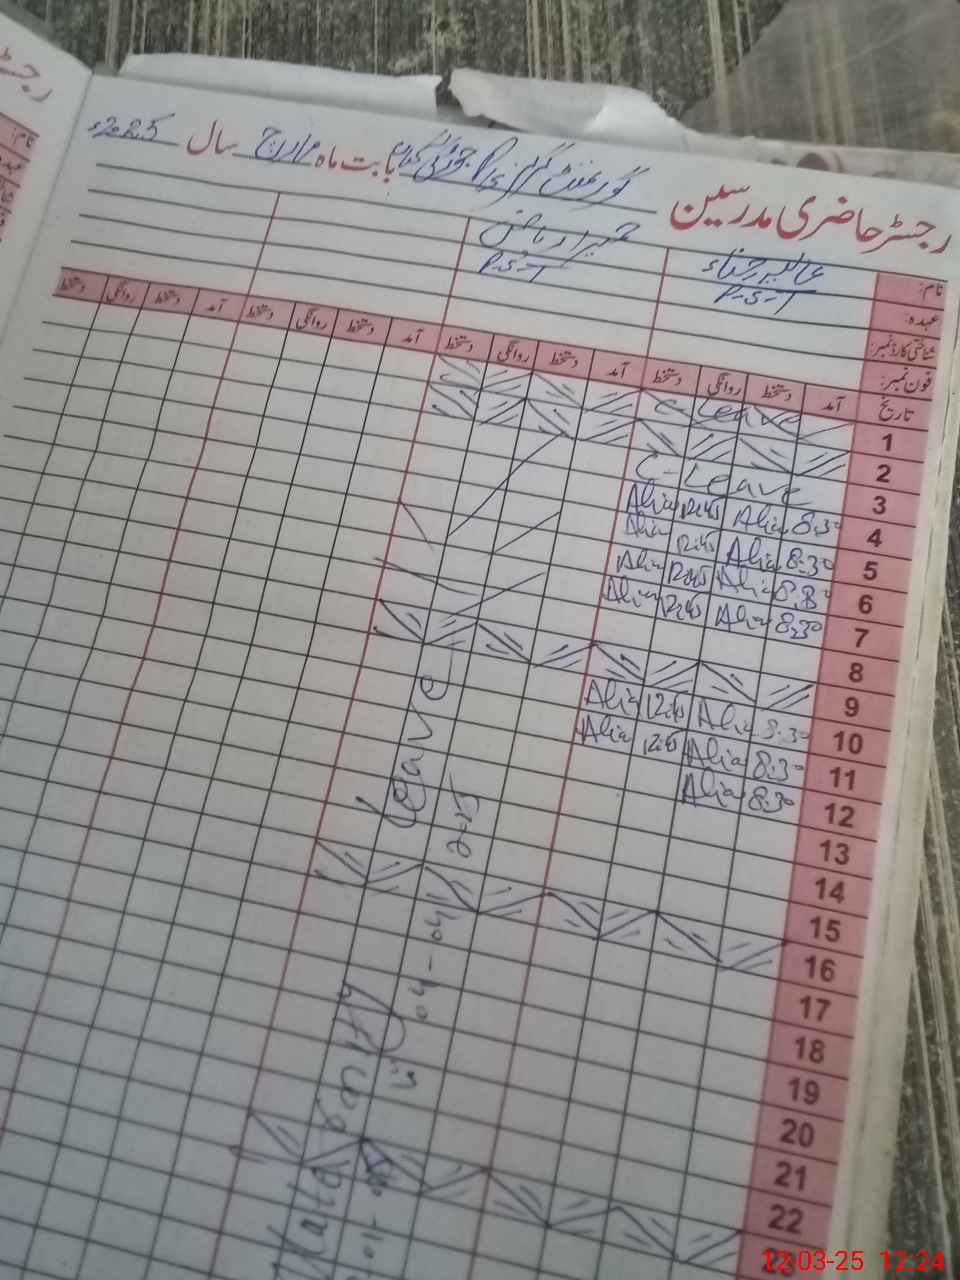 رجسٹر حاضری مدرسین گورنمنٹ گرلز بابت ماہ مارچ سال 2025ء
نام: عالیہ
عہدہ: P.S.T P.S.T
شناختی کارڈ نمبر:
فون نمبر:
تاریخ آمد دستخط روانگی دستخط آمد دستخط روانگی دستخط آمد دستخط روانگی دستخط آمد دستخط روانگی دستخط
1 C-Leave
2
3 C-Leave
4 8:30 Alia 12:45 Alia
5 8:30 Alia 12:45 Alia
6 8:30 Alia 12:45 Alia
7 8:30 Alia 12:45 Alia
8
9
10 8:30 Alia 12:45 Alia
11 8:30 Alia 12:45 Alia
12 8:30 Alia
13
14
15
16
17
18
19
20
21
22
Leave
12-03-25 12:24